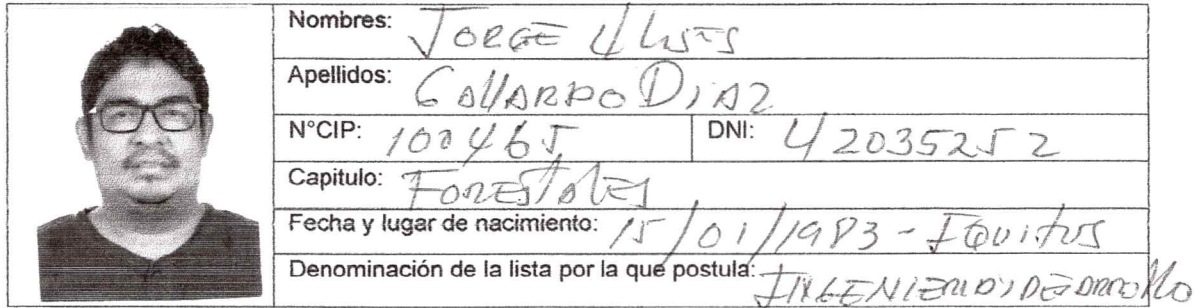 Nombres: JORGE ULISES
Apellidos: GALLARDO DIAZ
N°CIP: 100465 DNI: 42035252
Capitulo: FORESTALES
Fecha y lugar de nacimiento: 15/01/1983 - IQUITOS
Denominación de la lista por la que postula: INGENIERIA